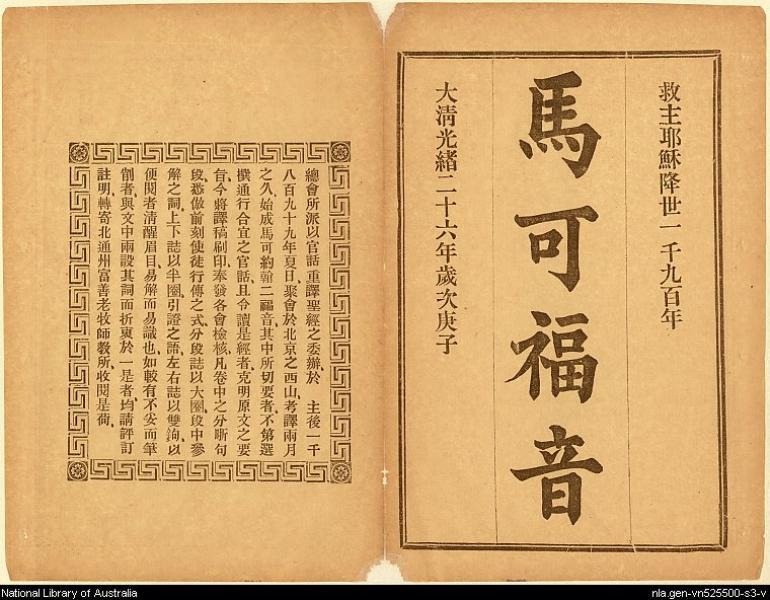 救主耶穌降世一千九百年
馬可福音
大清光緒二十六年歲次庚子
總會所派以官話重譯聖經之委辦於 主後一千
八百九十九年夏日聚會於北京之西山考譯兩月
之久始成馬可約翰二福音其中所切要者不第選
譔通行合宜之官話且令讀是經者克明原文之要
旨今將譯稿刷印奉發各會檢核凡卷中之分斷句
段悉倣前刻使徒行傳之式分段誌以大圈段中參
解之詞上下誌以半圈引證之語左右誌以雙鉤以
便閱者清醒眉目易解而易識也如較有不妥而筆
削者與文中兩設其詞而折衷於一是者均請評訂
註明轉寄北通州富善老牧師教所收閱是荷
National Library of Australia
nla.gen-vn525500-s3-v